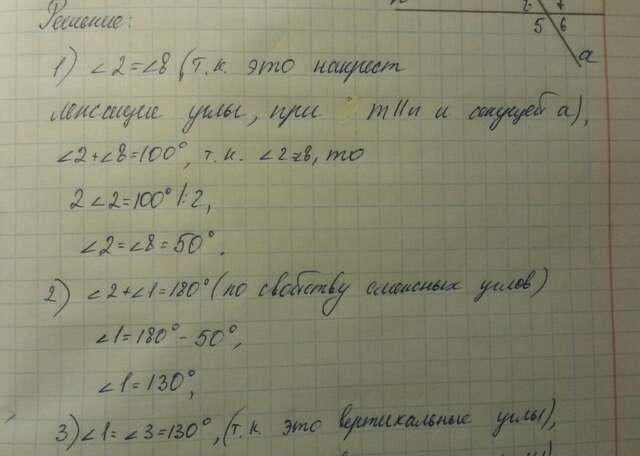 Решение:
5 6
a
1) ∠2=∠8 (т.к. это накрест
лежащие углы, при m||n и секущей a),
∠2+∠8=100°, т.к. ∠2=∠8, то
2∠2=100° |:2,
∠2=∠8=50°.
2) ∠2+∠1=180° (по свойству смежных углов)
∠1=180°-50°,
∠1=130°,
3) ∠1=∠3=130°, (т.к. это вертикальные углы),